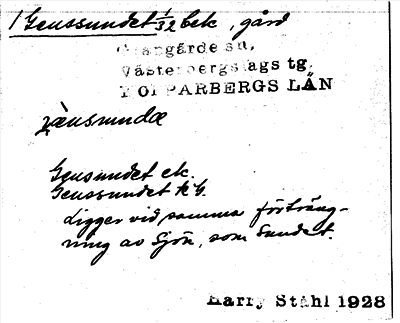 1 Genssundet 1/32 bek, gård
Grangärde sn,
Västerbergslags tg.
KOPPARBERGS LÄN
jènsundœ
Gensundet ek.
Genssundet kG.
Ligger vid samma förträng-
ning av sjön, som Sundet.
Harry Ståhl 1928